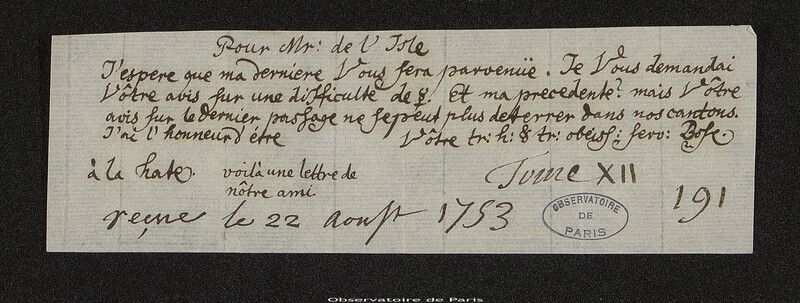 Pour Mr: de l'Isle
J'espere que ma derniere Vous sera parvenüe. Je Vous demandai
Vôtre avis sur une difficulte de ☿. Et ma precedente? mais Vôtre
avis sur le dernier passage ne se peut plus deterrer dans nos cantons.
J'ai l'honneur d'étre Vôtre tr: h: & tr: obeiss: serv: Bose.
à la hate. voilà une lettre de
nôtre ami
Tome XII
reçue le 22 Aoust 1753
191
OBSERVATOIRE
DE
PARIS
Observatoire de Paris